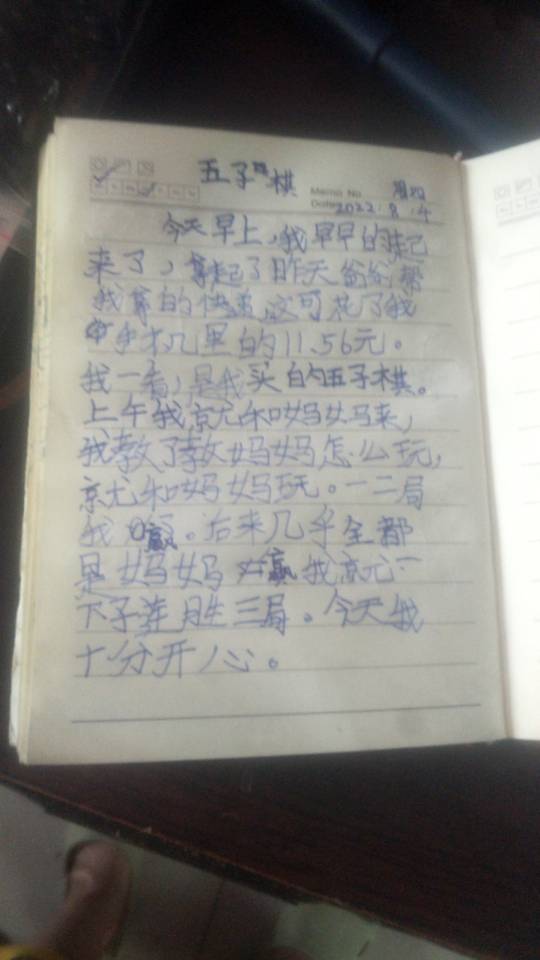 五子棋
Memo No. 周四
Date 2022.8.4
今天早上,我早早的起
来了,拿起了昨天爸爸帮
我拿的快递,这可花了我
手机里的11.56元。
我一看,是我买的五子棋。
上午我就和妈妈来,
我教了教妈妈怎么玩,
就和妈妈玩。一二局
我赢。后来几乎全都
是妈妈赢我就一
下子连胜三局。今天我
十分开心。